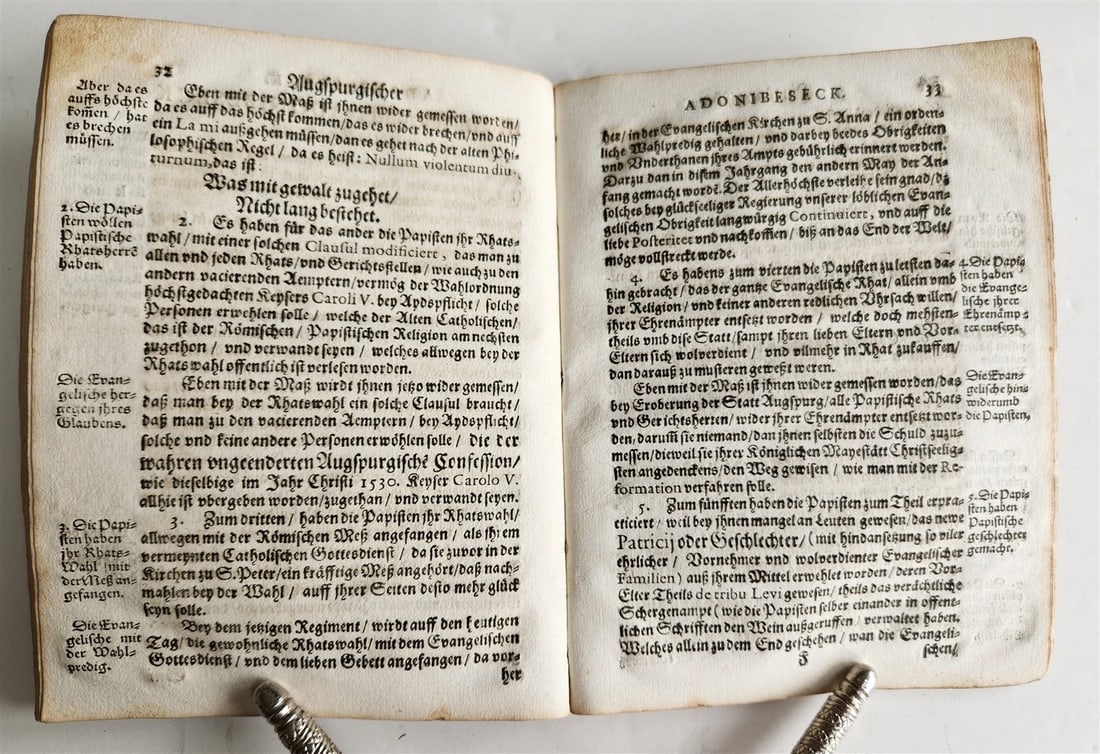 32
Augspurgischer
Aber da es
auffs höchste
kommen / hat
es brechen
müssen.
Eben mit der Maß ist jhnen wider gemessen worden/
da es auff das höchst kommen/das es wider brechen/und auff
ein La mi außgehen müssen/dan es gehet nach der alten Phi-
losophischen Regel / da es heist: Nullum violentum diu-
turnum, das ist:
Was mit gewalt zugehet/
Nicht lang bestehet.
2. Die Papi-
sten wöllen
Papistische
Rhatsherrē
haben.
2. Es haben für das ander die Papisten jhr Rhats-
wahl / mit einer solchen Clausul modificiert, das man zu
allen vnd jeden Rhats/vnd Gerichtstellen/wie auch zu den
andern vacierenden Aemptern/vermög der Wahlordnung
höchstgedachten Keysers Caroli V. bey Aydspflicht / solche
Personen erwehlen solle / welche der Alten Catholischen/
das ist der Römischen / Papistischen Religion am nechsten
zugethon / vnd verwandt seyen / welches allwegen bey der
Rhatswahl offentlich ist verlesen worden.
Die Evan-
gelische her-
gegen jhres
Glaubens.
Eben mit der Maß wirdt jhnen jetzo wider gemessen/
daß man bey der Rhatswahl ein solche Clausul braucht/
daß man zu den vacierenden Aemptern / bey Aydspflicht/
solche vnd keine andere Personen erwöhlen solle / die der
wahren vngeenderten Augspurgischē Confession/
wie dieselbige im Jahr Christi 1530. Keyser Carolo V.
allhie ist vbergeben worden/zugethan / vnd verwandt seyen.
3. Die Papi-
sten haben
jhr Rhats-
Wahl mit
der Meß an-
gefangen.
3. Zum dritten / haben die Papisten jhr Rhatswahl/
allwegen mit der Römischen Meß angefangen / als jhrem
vermeynten Catholischen Gottesdienst / da sie zuvor in der
Kirchen zu S. Peter/ein kräfftige Meß angehört/daß nach-
mahlen bey der Wahl / auff jhrer Seiten desto mehr glück
seyn solle.
Die Evan-
gelische mit
der Wahl-
predig.
Bey dem jetzigen Regiment / wirdt auff den heutigen
Tag/die gewohnliche Rhatswahl/mit dem Evangelischen
Gottesdienst / vnd dem lieben Gebett angefangen / da vor-
her
ADONIBESECK.
33
her/in der Evangelischen Kirchen zu S. Anna / ein ordent-
liche Wahlpredig gehalten / vnd darbey beedes Obrigkeiten
vnd Vnderthanen jhres Ampts gebührlich erinnert werden.
Darzu dan in disem Jahrgang den andern May der An-
fang gemacht wordē. Der Allerhöchste verleihe sein gnad/dz
solches bey glückseeliger Regierung vnserer löblichen Evan-
gelischen Obrigkeit langwürgig Continuiert, vnd auff die
liebe Posteritet vnd nachkommen / biß an das End der Welt/
möge vollstreckt werde.
4. Die Papi-
sten haben
die Evange-
lische jhrer
Ehrenämp-
ter entsetzt.
4. Es habens zum vierten die Papisten zu letsten da-
hin gebracht / das der gantze Evangelische Rhat / allein vmb
der Religion / vnd keiner anderen redlichen Vhrsach willen/
jhrer Ehrenämpter entsetzt worden / welche doch mehsten-
theils vmb dise Statt/sampt jhren lieben Eltern vnd Vor-
Eltern sich wolverdient / vnd vilmehr in Rhat zukauffen/
dan darauß zu musteren gewest weren.
Die Evan-
gelische hin-
widerumb
die Papisten.
Eben mit der Maß ist jhnen wider gemessen worden/das
bey Eroberung der Statt Augspurg/alle Papistische Rhats
vnd Gerichtsherren/wider jhrer Ehrenämpter entsetzt wor-
den, darumb sie niemand/dan jhnen selbsten die Schuld zuzu-
messen/dieweil sie jhrer Königlichen Mayestätt Christseelig-
sten angedenckens/den Weg gewisen / wie man mit der Re-
formation verfahren solle.
5. Die Papi-
sten haben
Papistische
geschlechter
gemacht.
5. Zum fünfften haben die Papisten zum Theil erpra-
cticiert / weil bey jhnen mangel an Leuten gewesen/das newe
Patricij oder Geschlechter/ (mit hindansetzung so viler
ehrlicher / Vornehmer vnd wolverdienter Evangelischer
Familien) auß jhrem Mittel erwehlet worden / deren Vor-
Elter Theils de tribu Levi gewesen/ theils das verächtliche
Schergenampt (wie die Papisten selber einander in offent-
lichen Schrifften den Wein außgeruffen / verwaltet haben.
Welches allein zu dem End geschehen / wan die Evangeli-
schen/